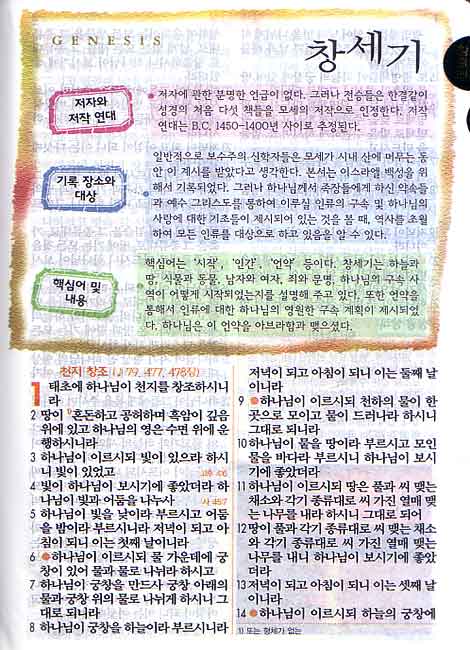 GENESIS
창세기
저자와
저작 연대
저자에 관한 분명한 언급이 없다. 그러나 전승들은 한결같이
성경의 처음 다섯 책들을 모세의 저작으로 인정한다. 저작
연대는 B.C. 1450-1400년 사이로 추정된다.
기록 장소와
대상
일반적으로 보수주의 신학자들은 모세가 시내 산에 머무는 동
안 이 계시를 받았다고 생각한다. 본서는 이스라엘 백성을 위
해서 기록되었다. 그러나 하나님께서 족장들에게 하신 약속들
과 예수 그리스도를 통하여 이루실 인류의 구속 및 하나님의
사랑에 대한 기초들이 제시되어 있는 것을 볼 때, 역사를 초월
하여 모든 인류를 대상으로 하고 있음을 알 수 있다.
핵심어 및
내용
핵심어는 '시작', '인간', '언약' 등이다. 창세기는 하늘과
땅, 식물과 동물, 남자와 여자, 죄와 문명, 하나님의 구속 사
역이 어떻게 시작되었는지를 설명해 주고 있다. 또한 언약을
통해서 인류에 대한 하나님의 영원한 구속 계획이 제시되었
다. 하나님은 이 언약을 아브라함과 맺으셨다.
천지 창조 (♪79, 477, 478장)
1 태초에 하나님이 천지를 창조하시니
라
2 땅이 1)혼돈하고 공허하며 흑암이 깊음
위에 있고 하나님의 영은 수면 위에 운
행하시니라
3 하나님이 이르시되 빛이 있으라 하시
니 빛이 있었고
4 빛이 하나님이 보시기에 좋았더라 하
나님이 빛과 어둠을 나누사
5 하나님이 빛을 낮이라 부르시고 어둠
을 밤이라 부르시니라 저녁이 되고 아
침이 되니 이는 첫째 날이니라
6 ●하나님이 이르시되 물 가운데에 궁
창이 있어 물과 물로 나뉘라 하시고
7 하나님이 궁창을 만드사 궁창 아래의
물과 궁창 위의 물로 나뉘게 하시니 그
대로 되니라
8 하나님이 궁창을 하늘이라 부르시니라
저녁이 되고 아침이 되니 이는 둘째 날
이니라
9 ●하나님이 이르시되 천하의 물이 한
곳으로 모이고 뭍이 드러나라 하시니
그대로 되니라
10 하나님이 뭍을 땅이라 부르시고 모인
물을 바다라 부르시니 하나님이 보시
기에 좋았더라
11 하나님이 이르시되 땅은 풀과 씨 맺는
채소와 각기 종류대로 씨 가진 열매 맺
는 나무를 내라 하시니 그대로 되어
12 땅이 풀과 각기 종류대로 씨 맺는 채소
와 각기 종류대로 씨 가진 열매 맺는
나무를 내니 하나님이 보시기에 좋았
더라
13 저녁이 되고 아침이 되니 이는 셋째 날
이니라
14 ●하나님이 이르시되 하늘의 궁창에
1) 또는 형체가 없는